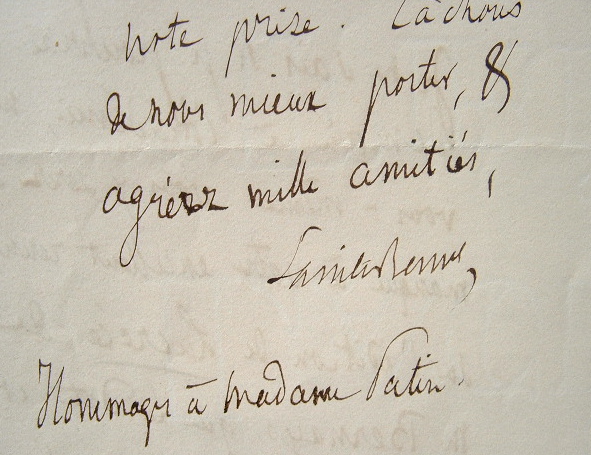 note prise. Tâchons
de nous mieux porter, &
agréez mille amitiés,
Sainte-Beuve,
Hommages à madame Patin.